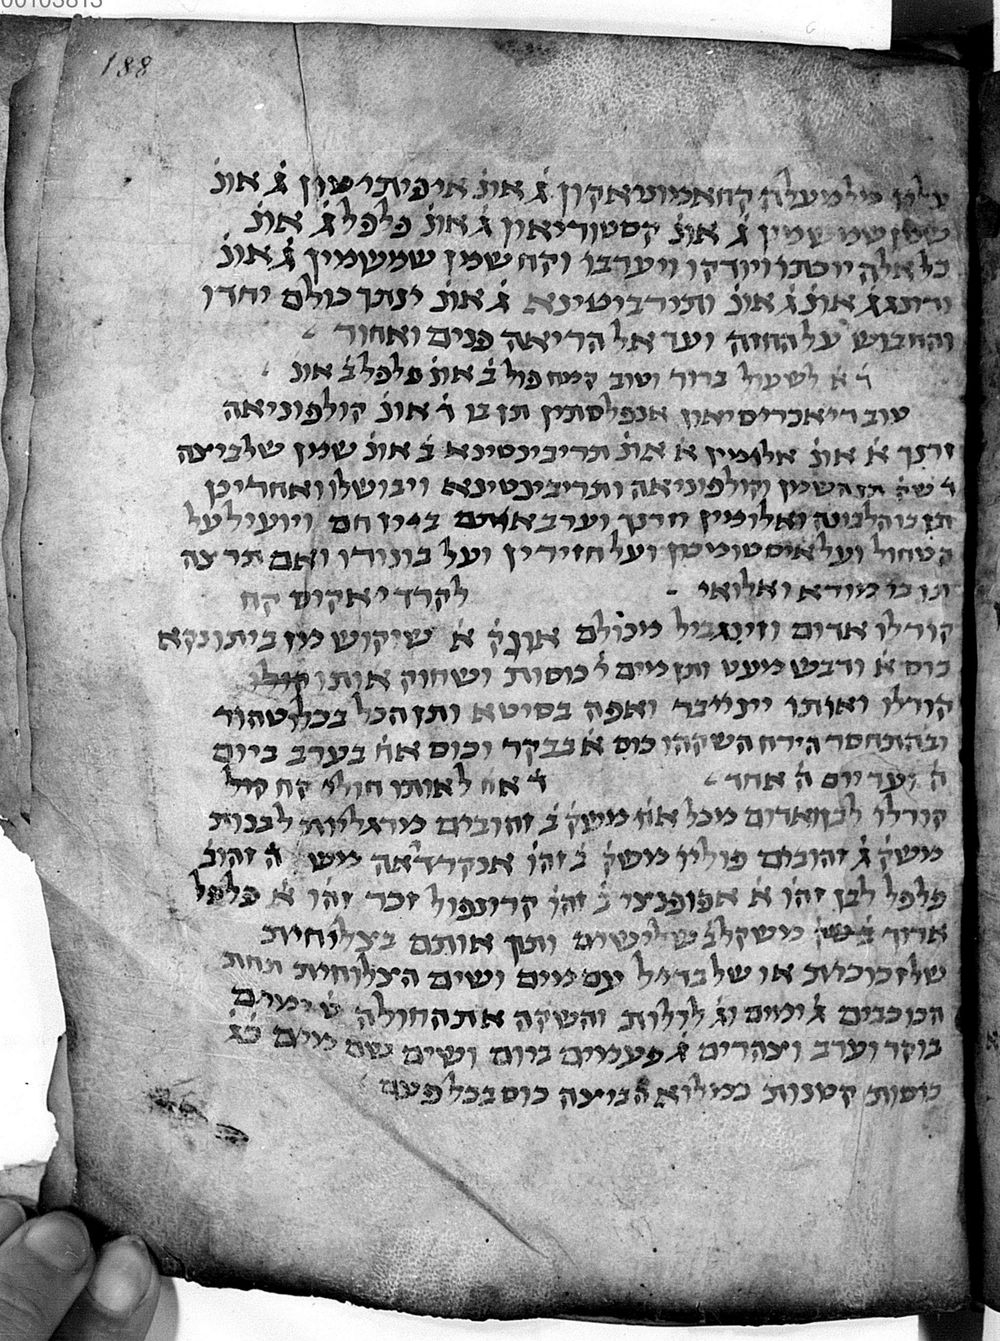 00103813
188
מלמעלה קח אמוניאקון ג̇ אונ̇ איפיתימון ג̇ אונ̇
שמן שמשמין ג̇ אונ̇ קסטוריאון ג̇ אונ̇ פלפל ג̇ אונ̇
כל אלה יוכתו ויודקו ויערבו וקח שמן שמשמין ג̇ אונ̇
ודונגג̇ אונ̇ ג̇ אונ̇ ותירביטינא ג̇ אונ̇ ינתך כולם יחדו
והחבוש על החזה ועד אל הריאה פנים ואחור
ד̇ א̇ לשעול ברור וטוב קמח פול ב̇ אונ̇ פלפל ב̇ אונ̇
עוב דיאכריסיאון אנפלסתין תן בו ד̇ אונ̇ קולפוניאה
זרנך א̇ אונ̇ אלומין א̇ אונ̇ תריבינטינא ב̇ אונ̇ שמן של ביצה
תן השמן וקולפוניאה ותריבינטינא ויבושלו ואחרי כן
תן בו הלבונה ואלומין וזרנך וערב אותם חם ויועיל על
הטחול ועל איסטומיכון ועל חזירין ועל בונודו ואם תרצה
תן בו מורא ואלואי
לקרדיאקוס קח
קורלו אדום וזינגביל מכולם אונק̇ א̇ שיקוש מן ביתוניקא
כוס א̇ ודבש מעט ותן מים ל̇ כוסות ושחוק אותו
קורלו ואותו זינגיבר ואפה בסיטא ותן הכל בכלי טהור
ובהתחסר הירח השקהו כוס א̇ בבקר וכוס אח̇ בערב ביום
ה̇ ועד יום ה̇ אחר
ד̇ אח̇ לאותו חולי קח
קורלו לבן ואדום מכל אח̇ משק̇ ב̇ זהובים מרגליות לבנות
משק̇ ג̇ זהובים פוליו משק̇ ב̇ זהו̇ אנקרדיאה מש̇ ה̇ זהוב̇
פלפל לבן זהו̇ א̇ אפופנצי ב̇ זהו̇ קרונפול זכר זהו̇ א̇ פלפל
ארוך משקל ב̇ שלישים ותן אותם בצלוחית
של זכוכית או של ברזל עם מים ושים הצלוחית תחת
הכוכבים ג̇ ימים וג̇ לילות והשקה את החולה ימים
בוקר וערב וצהרים ג̇ פעמים ביום ושים שם מים
כוסות קטנות כמלוא הביצה כוס בכל פעם